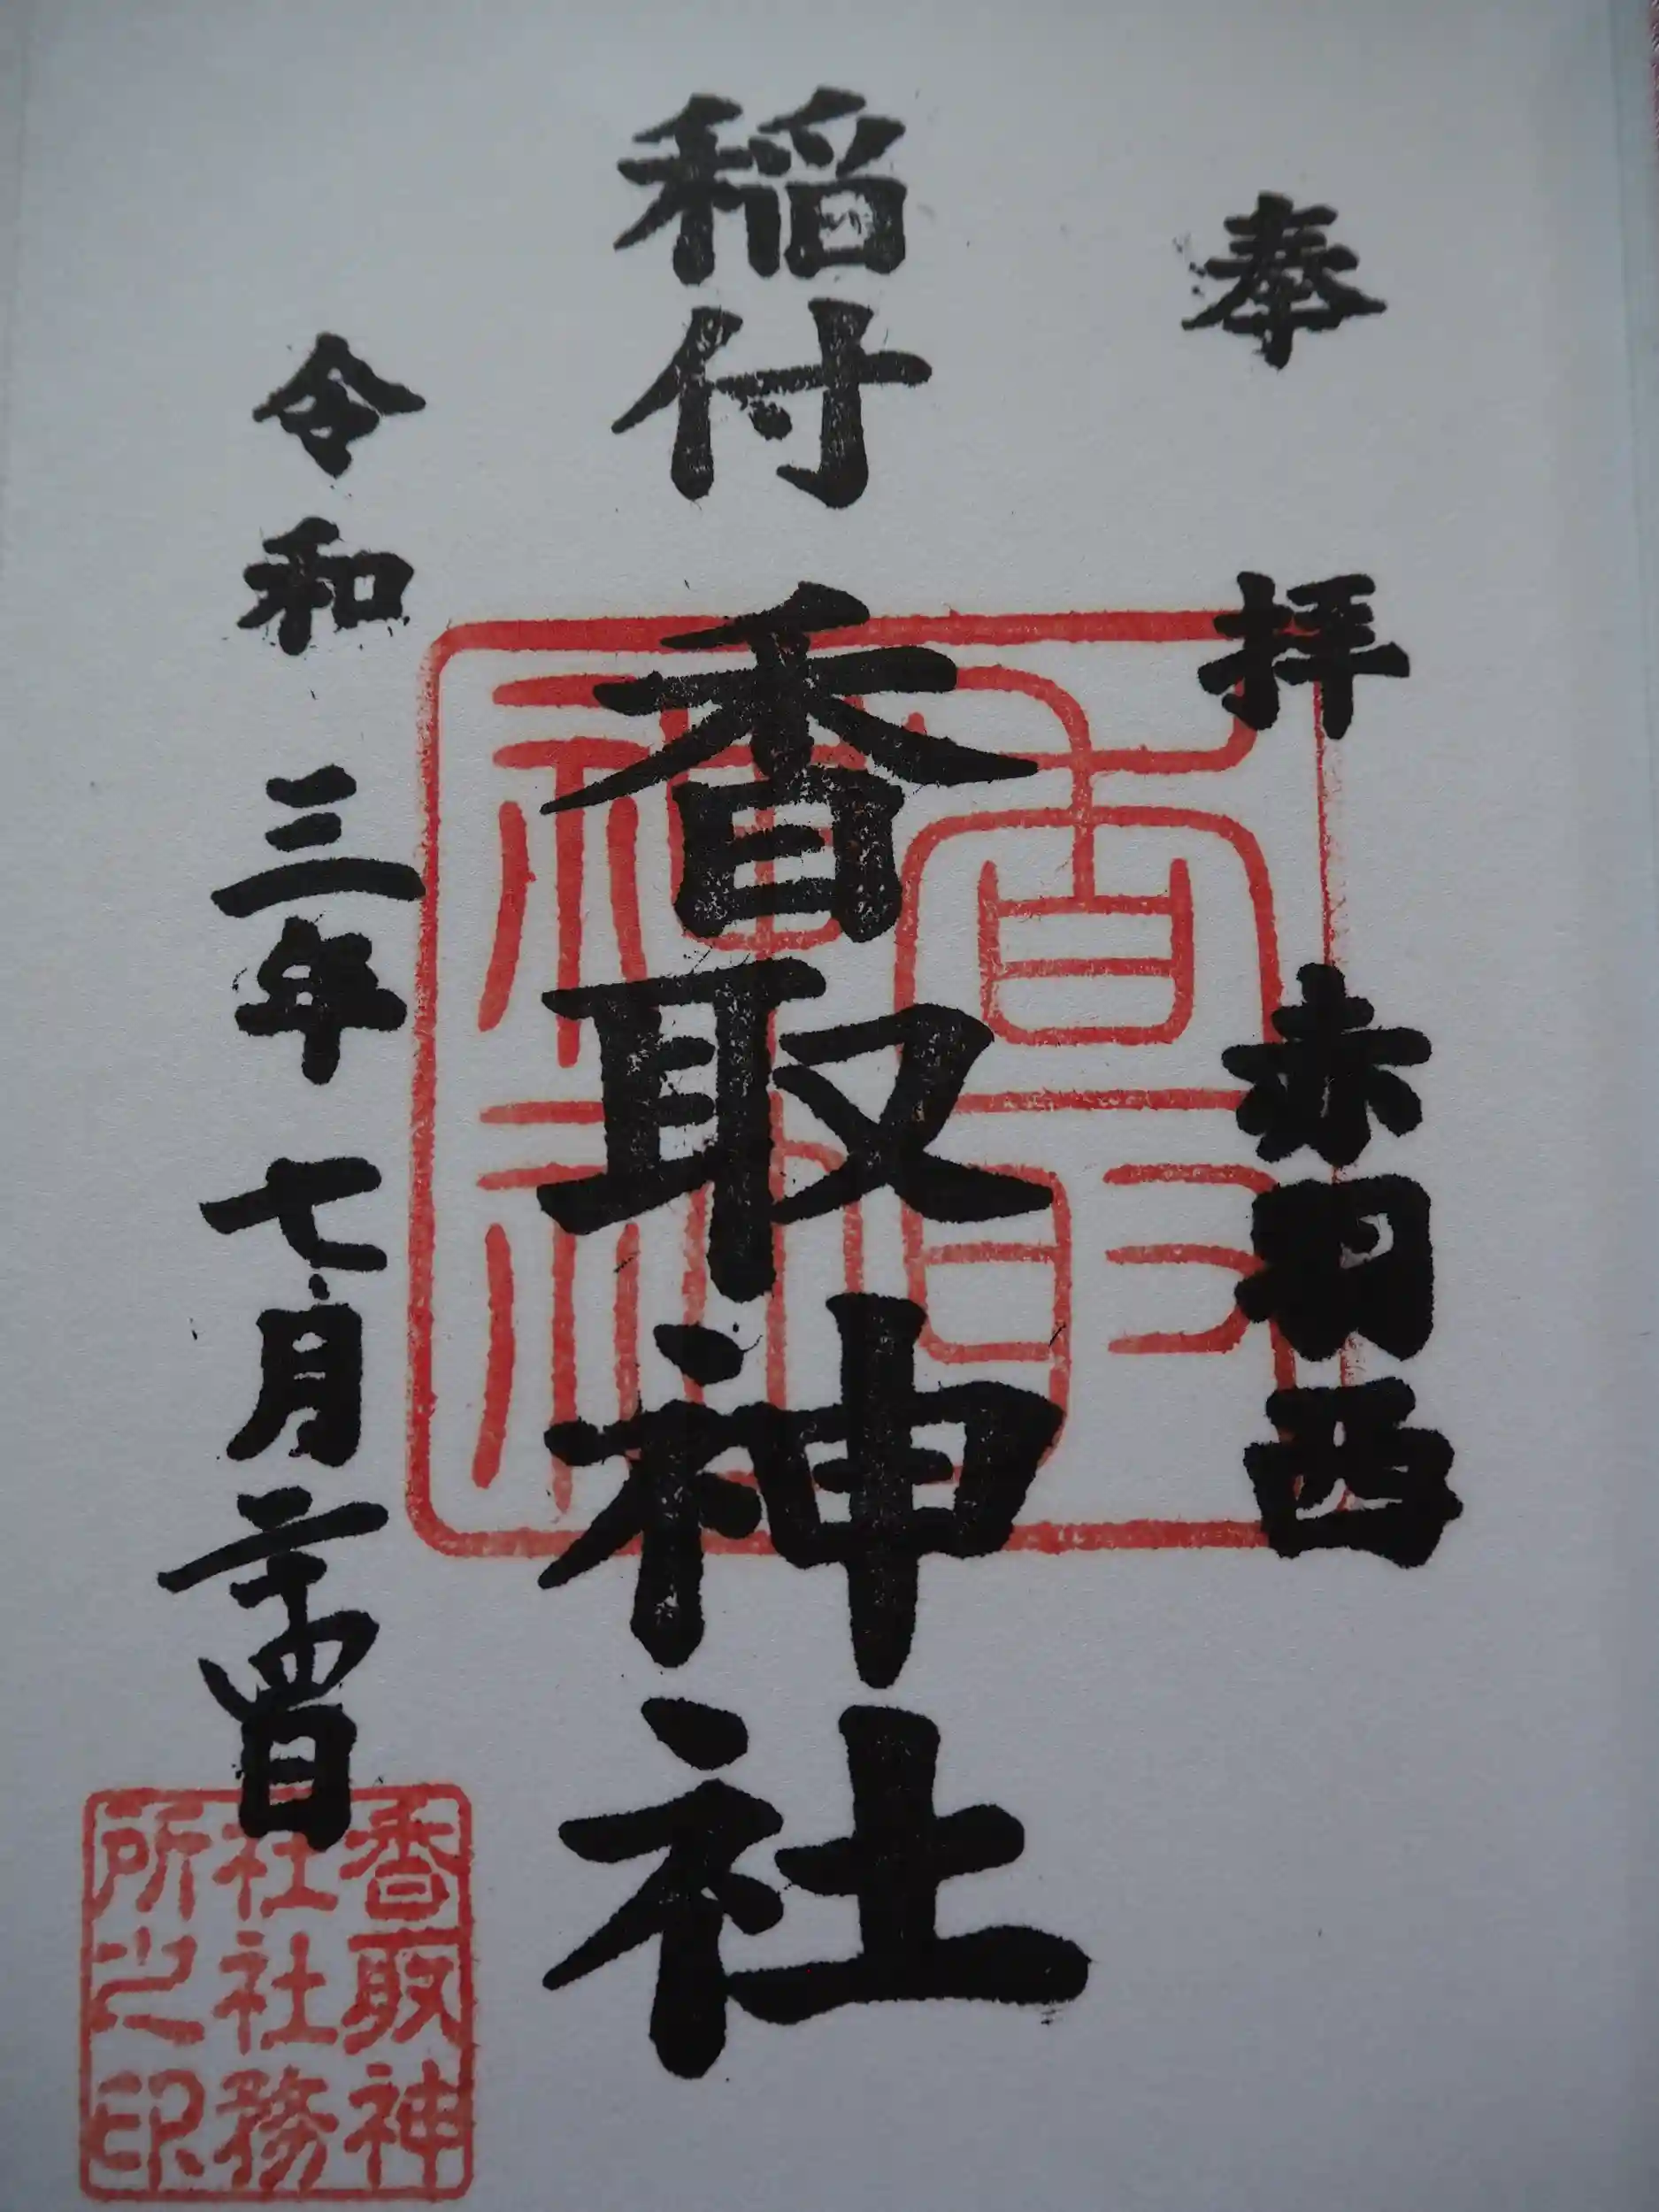 奉拝 赤羽西
稲付 香取神社
令和三年七月二十四日
香取神社
香取神
社社務
所之印